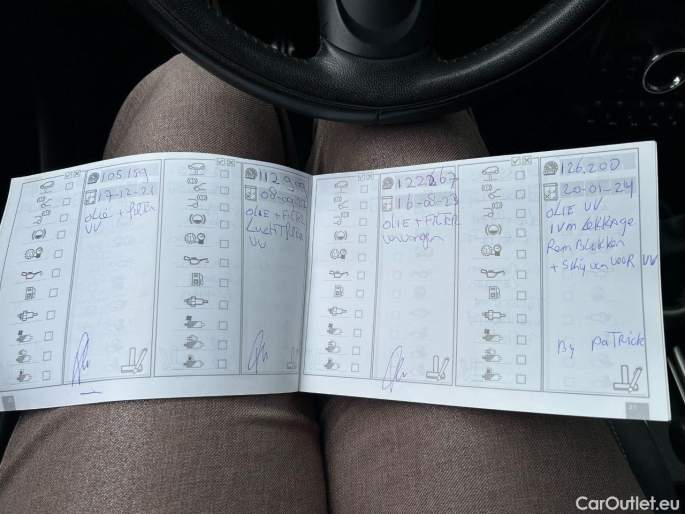 105189
17-12-21
olie + filter
VV
OLIE + FILTER
Luchtfilter
VV
16-08-23
OLIE + FILTER
vervangen
126.200
20-01-24
OLIE VV
IVM Lekkage
Remblokken
+ Schijven VOOR VV
By PATRICK
CarOutlet.eu